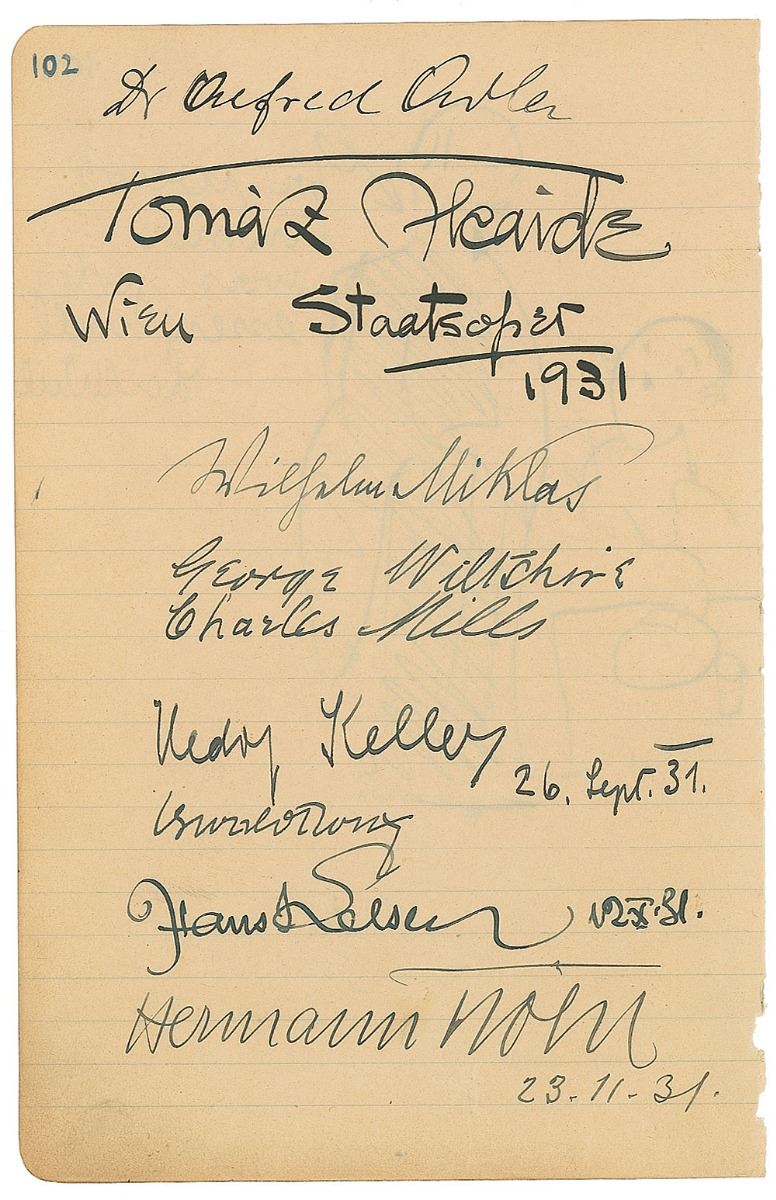 102
Dr Alfred Adler
Tomàz Alcaide
Wien Staatsoper
1931
Wilhelm Miklas
George Wiltschire
Charles Mills
Keller
26. Sept. 31.
Hans Kelsen 12 X. 31.
Hermann Köhl
23.11.31.